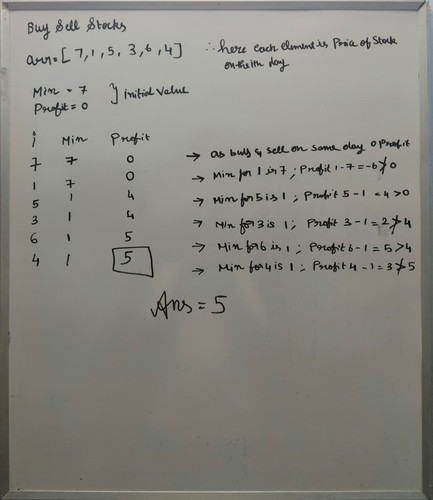 Buy Sell Stocks
arr = [7, 1, 5, 3, 6, 4] ∴ here each element is Price of Stock
on the ith day
Min = 7
Profit = 0 } initial value
i Min Profit
7 7 0 → as buy & sell on same day 0 Profit
1 7 0 → Min for 1 is 7; Profit 1-7 = -6 ≯ 0
5 1 4 → Min for 5 is 1; Profit 5-1 = 4 > 0
3 1 4 → Min for 3 is 1; Profit 3-1 = 2 ≯ 4
6 1 5 → Min for 6 is 1; Profit 6-1 = 5 > 4
4 1 5 → Min for 4 is 1; Profit 4-1 = 3 ≯ 5
Ans = 5